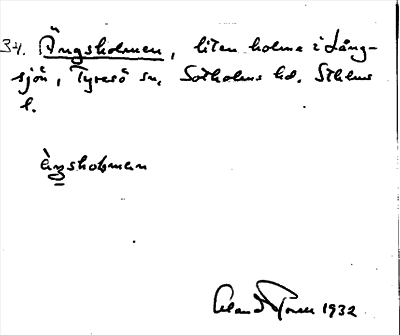 34. Ängsholmen, liten holme i Lång-
sjön, Tyresö sn, Sotholms hd. Sthlms
l.
ängsholmen
1932